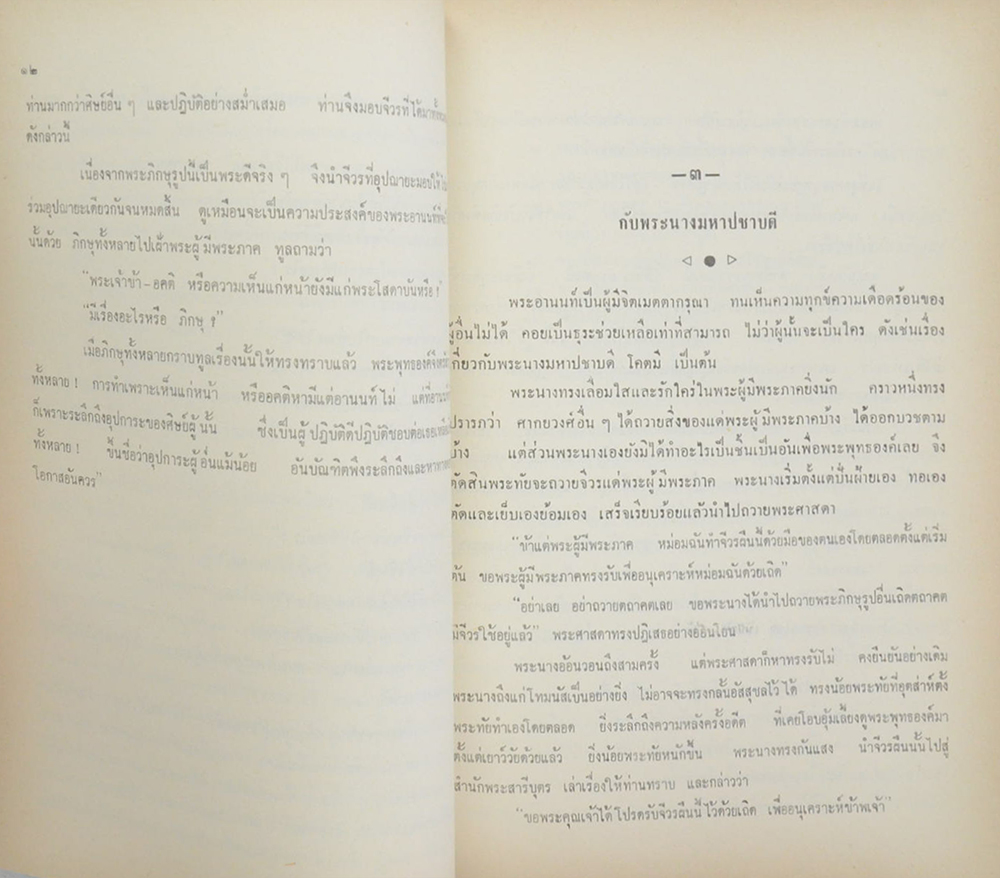 ๑๒
ท่านมากกว่าศิษย์อื่น ๆ และปฏิบัติอย่างสม่ำเสมอ ท่านจึงมอบจีวรที่ได้มา
ดังกล่าวนี้
เนื่องจากพระภิกษุรูปนี้เป็นพระดีจริง ๆ จึงนำจีวรที่อุปฌายะมอบให้
ร่วมอุปฌายะเดียวกันจนหมดสิ้น ดูเหมือนจะเป็นความประสงค์ของพระอานนท์
นั้นด้วย ภิกษุทั้งหลายไปเฝ้าพระผู้มีพระภาค ทูลถามว่า
"พระเจ้าข้า – อคติ หรือความเห็นแก่หน้ายังมีแก่พระโสดาบันหรือ ?"
"มีเรื่องอะไรหรือ ภิกษุ ?"
เมื่อภิกษุทั้งหลายกราบทูลเรื่องนั้นให้ทรงทราบแล้ว พระพุทธองค์จึง
ทั้งหลาย ! การทำเพราะเห็นแก่หน้า หรืออคติหามีแต่อานนท์ไม่ แต่ที่
ก็เพราะระลึกถึงอุปการะของศิษย์ผู้นั้น ซึ่งเป็นผู้ปฏิบัติดีปฏิบัติชอบต่อเธอ
ทั้งหลาย ! ขึ้นชื่อว่าอุปการะผู้อื่นแม้น้อย อันบัณฑิตพึงระลึกถึงและ
โอกาสอันควร"
— ๓ —
กับพระนางมหาปชาบดี
◁ ● ▷
พระอานนท์เป็นผู้มีจิตเมตตากรุณา ทนเห็นความทุกข์ความเดือดร้อนของ
ผู้อื่นไม่ได้ คอยเป็นธุระช่วยเหลือเท่าที่สามารถ ไม่ว่าผู้นั้นจะเป็นใคร ดังเช่นเรื่อง
เกี่ยวกับพระนางมหาปชาบดี โคตมี เป็นต้น
พระนางทรงเลื่อมใสและรักใคร่ในพระผู้มีพระภาคยิ่งนัก คราวหนึ่งทรง
ปรารภว่า ศากยวงศ์อื่น ๆ ได้ถวายสิ่งของแด่พระผู้มีพระภาคบ้าง ได้ออกบวชตาม
บ้าง แต่ส่วนพระนางเองยังมิได้ทำอะไรเป็นชิ้นเป็นอันเพื่อพระพุทธองค์เลย จึง
ตัดสินพระทัยจะถวายจีวรแด่พระผู้มีพระภาค พระนางเริ่มตั้งแต่ปั่นฝ้ายเอง ทอเอง
ตัดและเย็บเองย้อมเอง เสร็จเรียบร้อยแล้วนำไปถวายพระศาสดา
"ข้าแต่พระผู้มีพระภาค หม่อมฉันทำจีวรผืนนี้ด้วยมือของตนเองโดยตลอดตั้งแต่เริ่ม
ต้น ขอพระผู้มีพระภาคทรงรับเพื่ออนุเคราะห์หม่อมฉันด้วยเถิด"
"อย่าเลย อย่าถวายตถาคตเลย ขอพระนางได้นำไปถวายพระภิกษุรูปอื่นเถิดตถาคต
มีจีวรใช้อยู่แล้ว" พระศาสดาทรงปฏิเสธอย่างอ่อนโยน
พระนางอ้อนวอนถึงสามครั้ง แต่พระศาสดาก็หาทรงรับไม่ คงยืนยันอย่างเดิม
พระนางถึงแก่โทมนัสเป็นอย่างยิ่ง ไม่อาจจะทรงกลั้นอัสสุชลไว้ได้ ทรงน้อยพระทัยที่อุตส่าห์ตั้ง
พระทัยทำเองโดยตลอด ยิ่งระลึกถึงความหลังครั้งอดีต ที่เคยโอบอุ้มเลี้ยงดูพระพุทธองค์มา
ตั้งแต่เยาว์วัยด้วยแล้ว ยิ่งน้อยพระทัยหนักขึ้น พระนางทรงกันแสง นำจีวรผืนนั้นไปสู่
สำนักพระสารีบุตร เล่าเรื่องให้ท่านทราบ และกล่าวว่า
"ขอพระคุณเจ้าได้โปรดรับจีวรผืนนี้ไว้ด้วยเถิด เพื่ออนุเคราะห์ข้าพเจ้า"